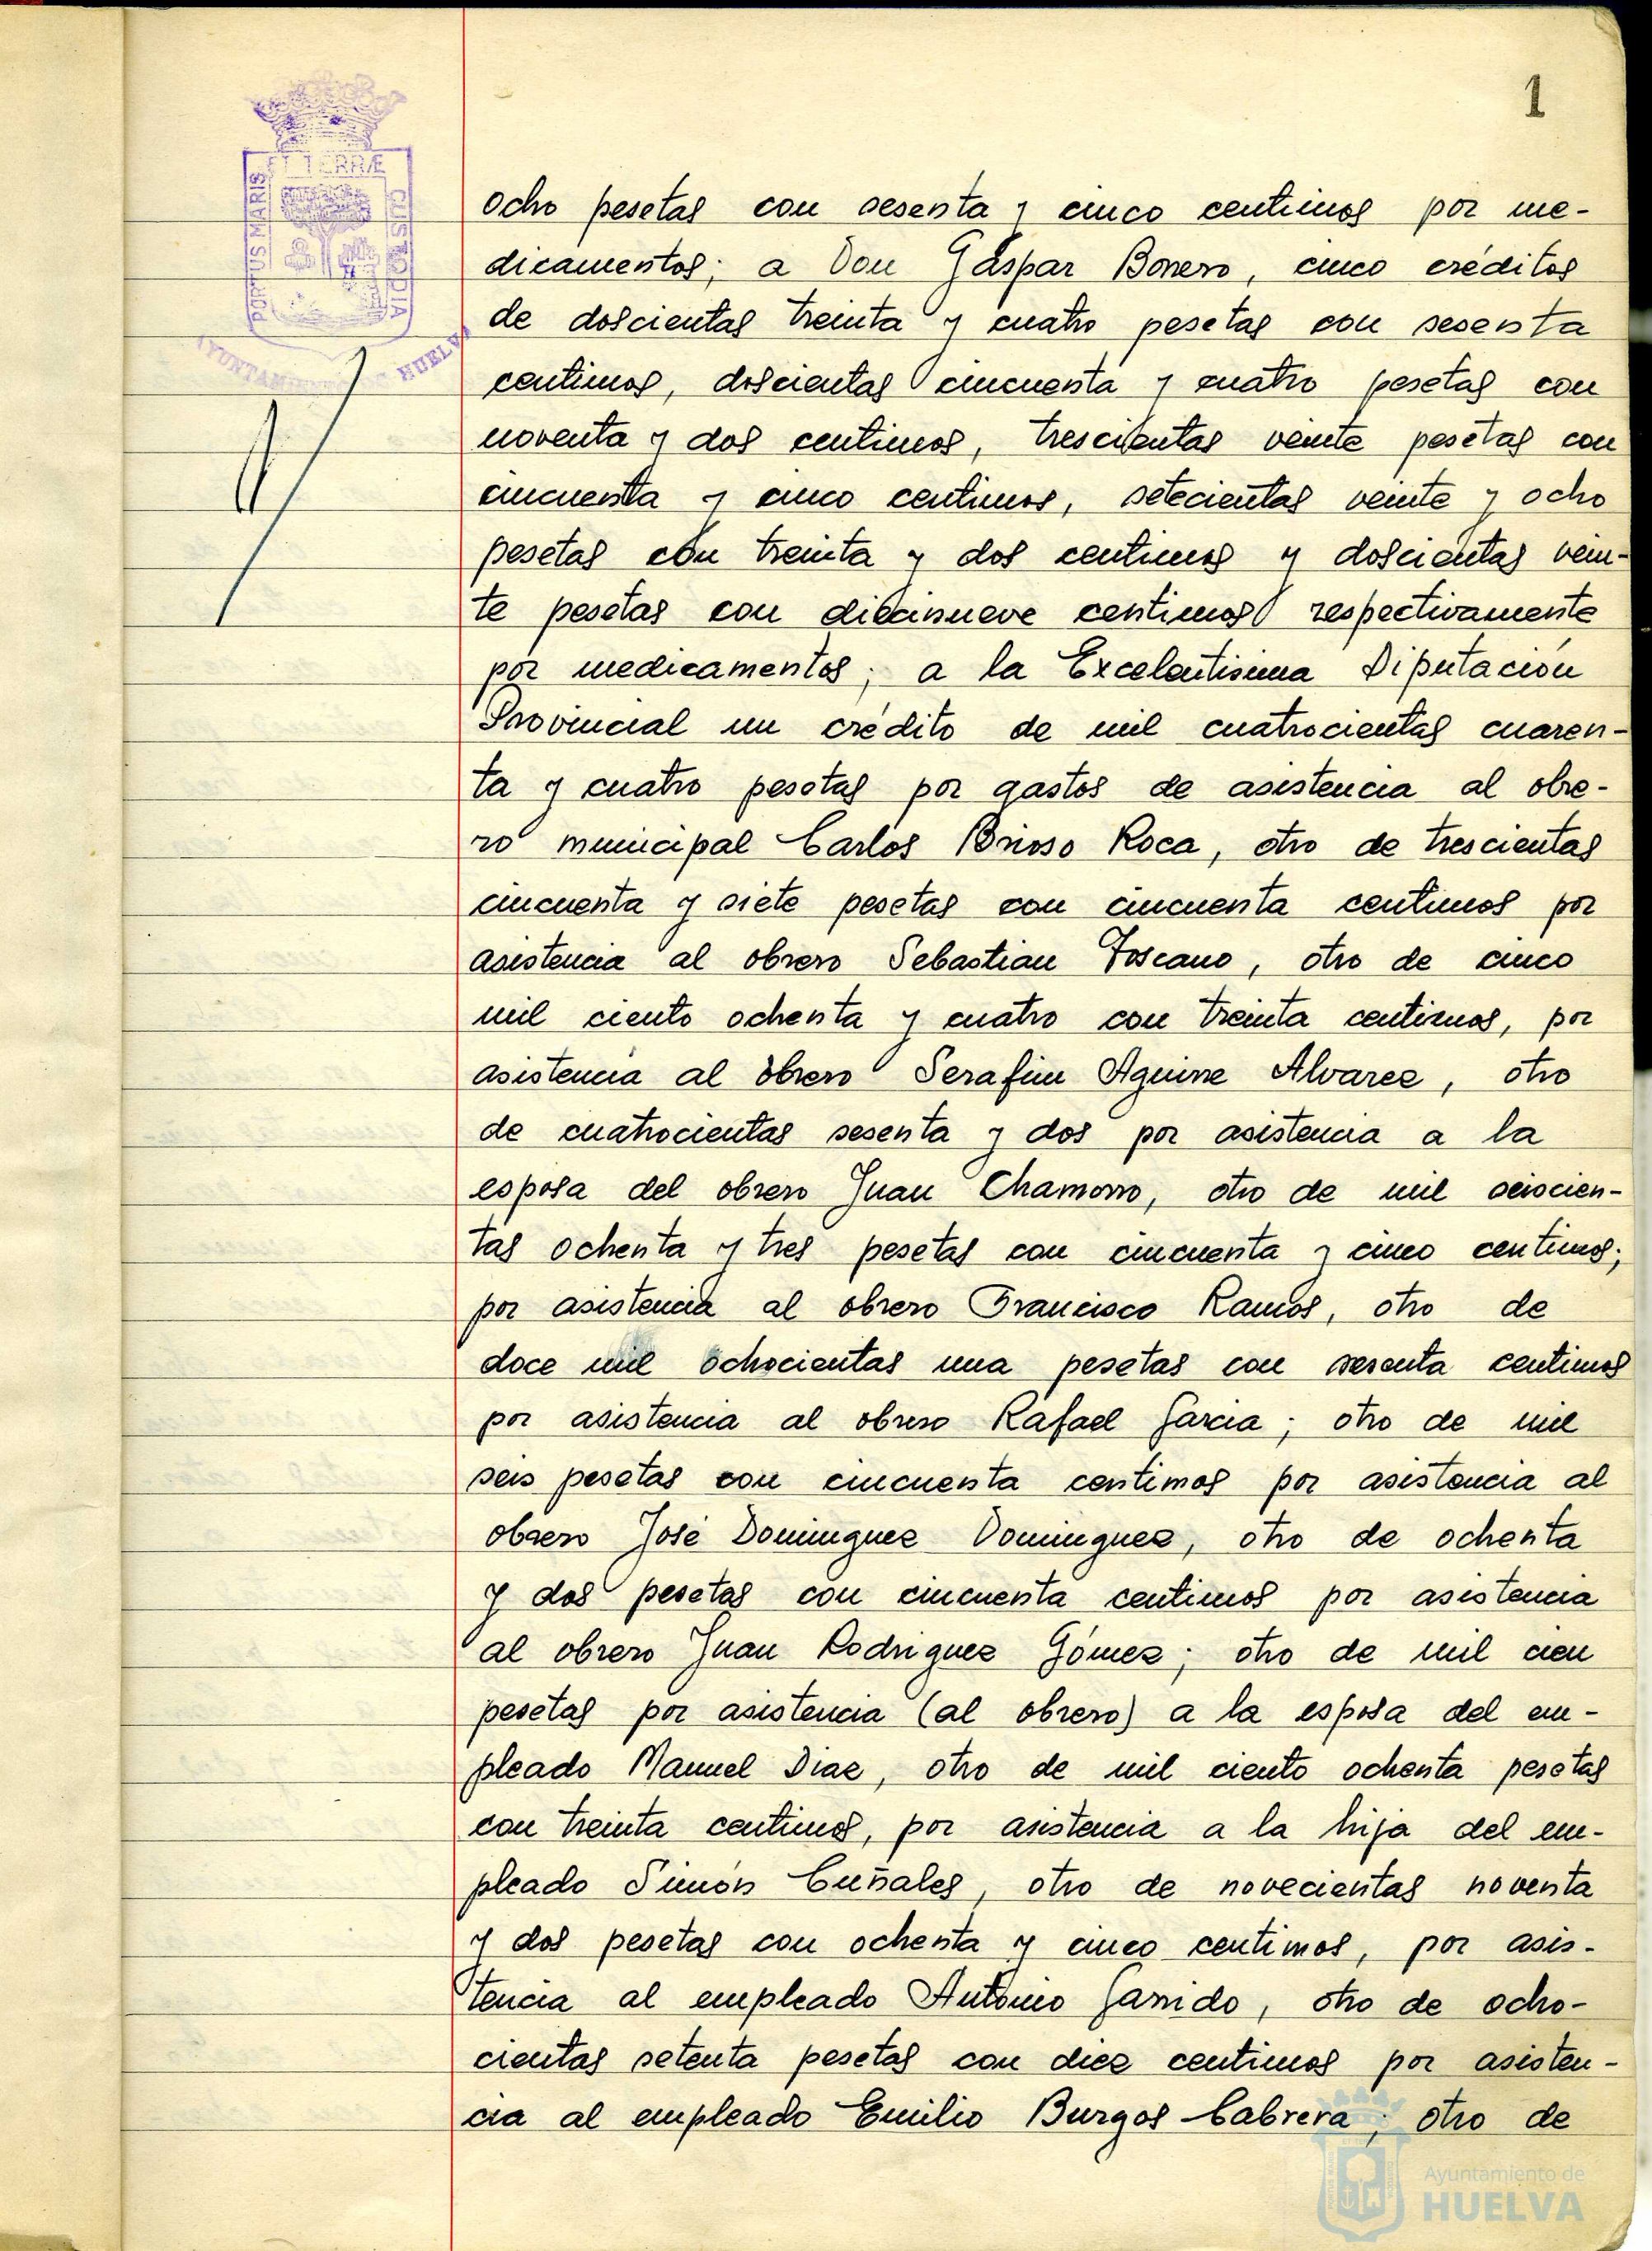 1
ET TERRÆ
PORTUS MARIS
CUSTODIA
AYUNTAMIENTO DE HUELVA
ocho pesetas con sesenta y cinco centimos por me-
dicamentos; a Don Gaspar Bonero, cinco créditos
de doscientas treinta y cuatro pesetas con sesenta
centimos, doscientas cincuenta y cuatro pesetas con
noventa y dos centimos, trescientas veinte pesetas con
cincuenta y cinco centimos, setecientas veinte y ocho
pesetas con treinta y dos centimos y doscientas vein-
te pesetas con diecinueve centimos respectivamente
por medicamentos; a la Excelentisima Diputación
Provincial un crédito de mil cuatrocientas cuaren-
ta y cuatro pesetas por gastos de asistencia al obre-
ro municipal Carlos Brioso Roca, otro de trescientas
cincuenta y siete pesetas con cincuenta centimos por
asistencia al obrero Sebastian Toscano, otro de cinco
mil ciento ochenta y cuatro con treinta centimos, por
asistencia al obrero Serafin Aguirre Alvarez, otro
de cuatrocientas sesenta y dos por asistencia a la
esposa del obrero Juan Chamorro, otro de mil seiscien-
tas ochenta y tres pesetas con cincuenta y cinco centimos;
por asistencia al obrero Francisco Ramos, otro de
doce mil ochocientas una pesetas con sesenta centimos
por asistencia al obrero Rafael Garcia; otro de mil
seis pesetas con cincuenta centimos por asistencia al
obrero José Dominguez Dominguez, otro de ochenta
y dos pesetas con cincuenta centimos por asistencia
al obrero Juan Rodriguez Gómez; otro de mil cien
pesetas por asistencia (al obrero) a la esposa del em-
pleado Manuel Diaz, otro de mil ciento ochenta pesetas
con treinta centimos, por asistencia a la hija del em-
pleado Simón Cuñales, otro de novecientas noventa
y dos pesetas con ochenta y cinco centimos, por asis-
tencia al empleado Antonio Garrido, otro de ocho-
cientas setenta pesetas con diez centimos por asisten-
cia al empleado Emilio Burgos Cabrera; otro de
Ayuntamiento de
HUELVA